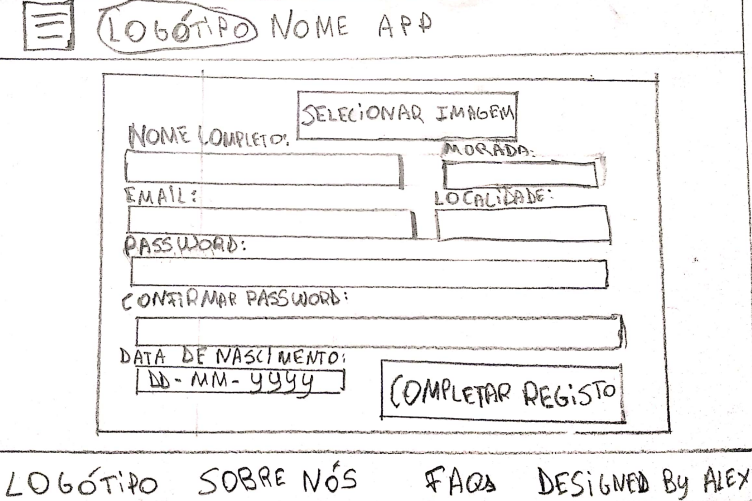 LOGÓTIPO NOME APP
SELECIONAR IMAGEM
NOME COMPLETO:
MORADA:
EMAIL:
LOCALIDADE:
PASSWORD:
CONFIRMAR PASSWORD:
DATA DE NASCIMENTO:
DD-MM-YYYY
COMPLETAR REGISTO
LOGÓTIPO SOBRE NÓS FAQs DESIGNED By ALEX